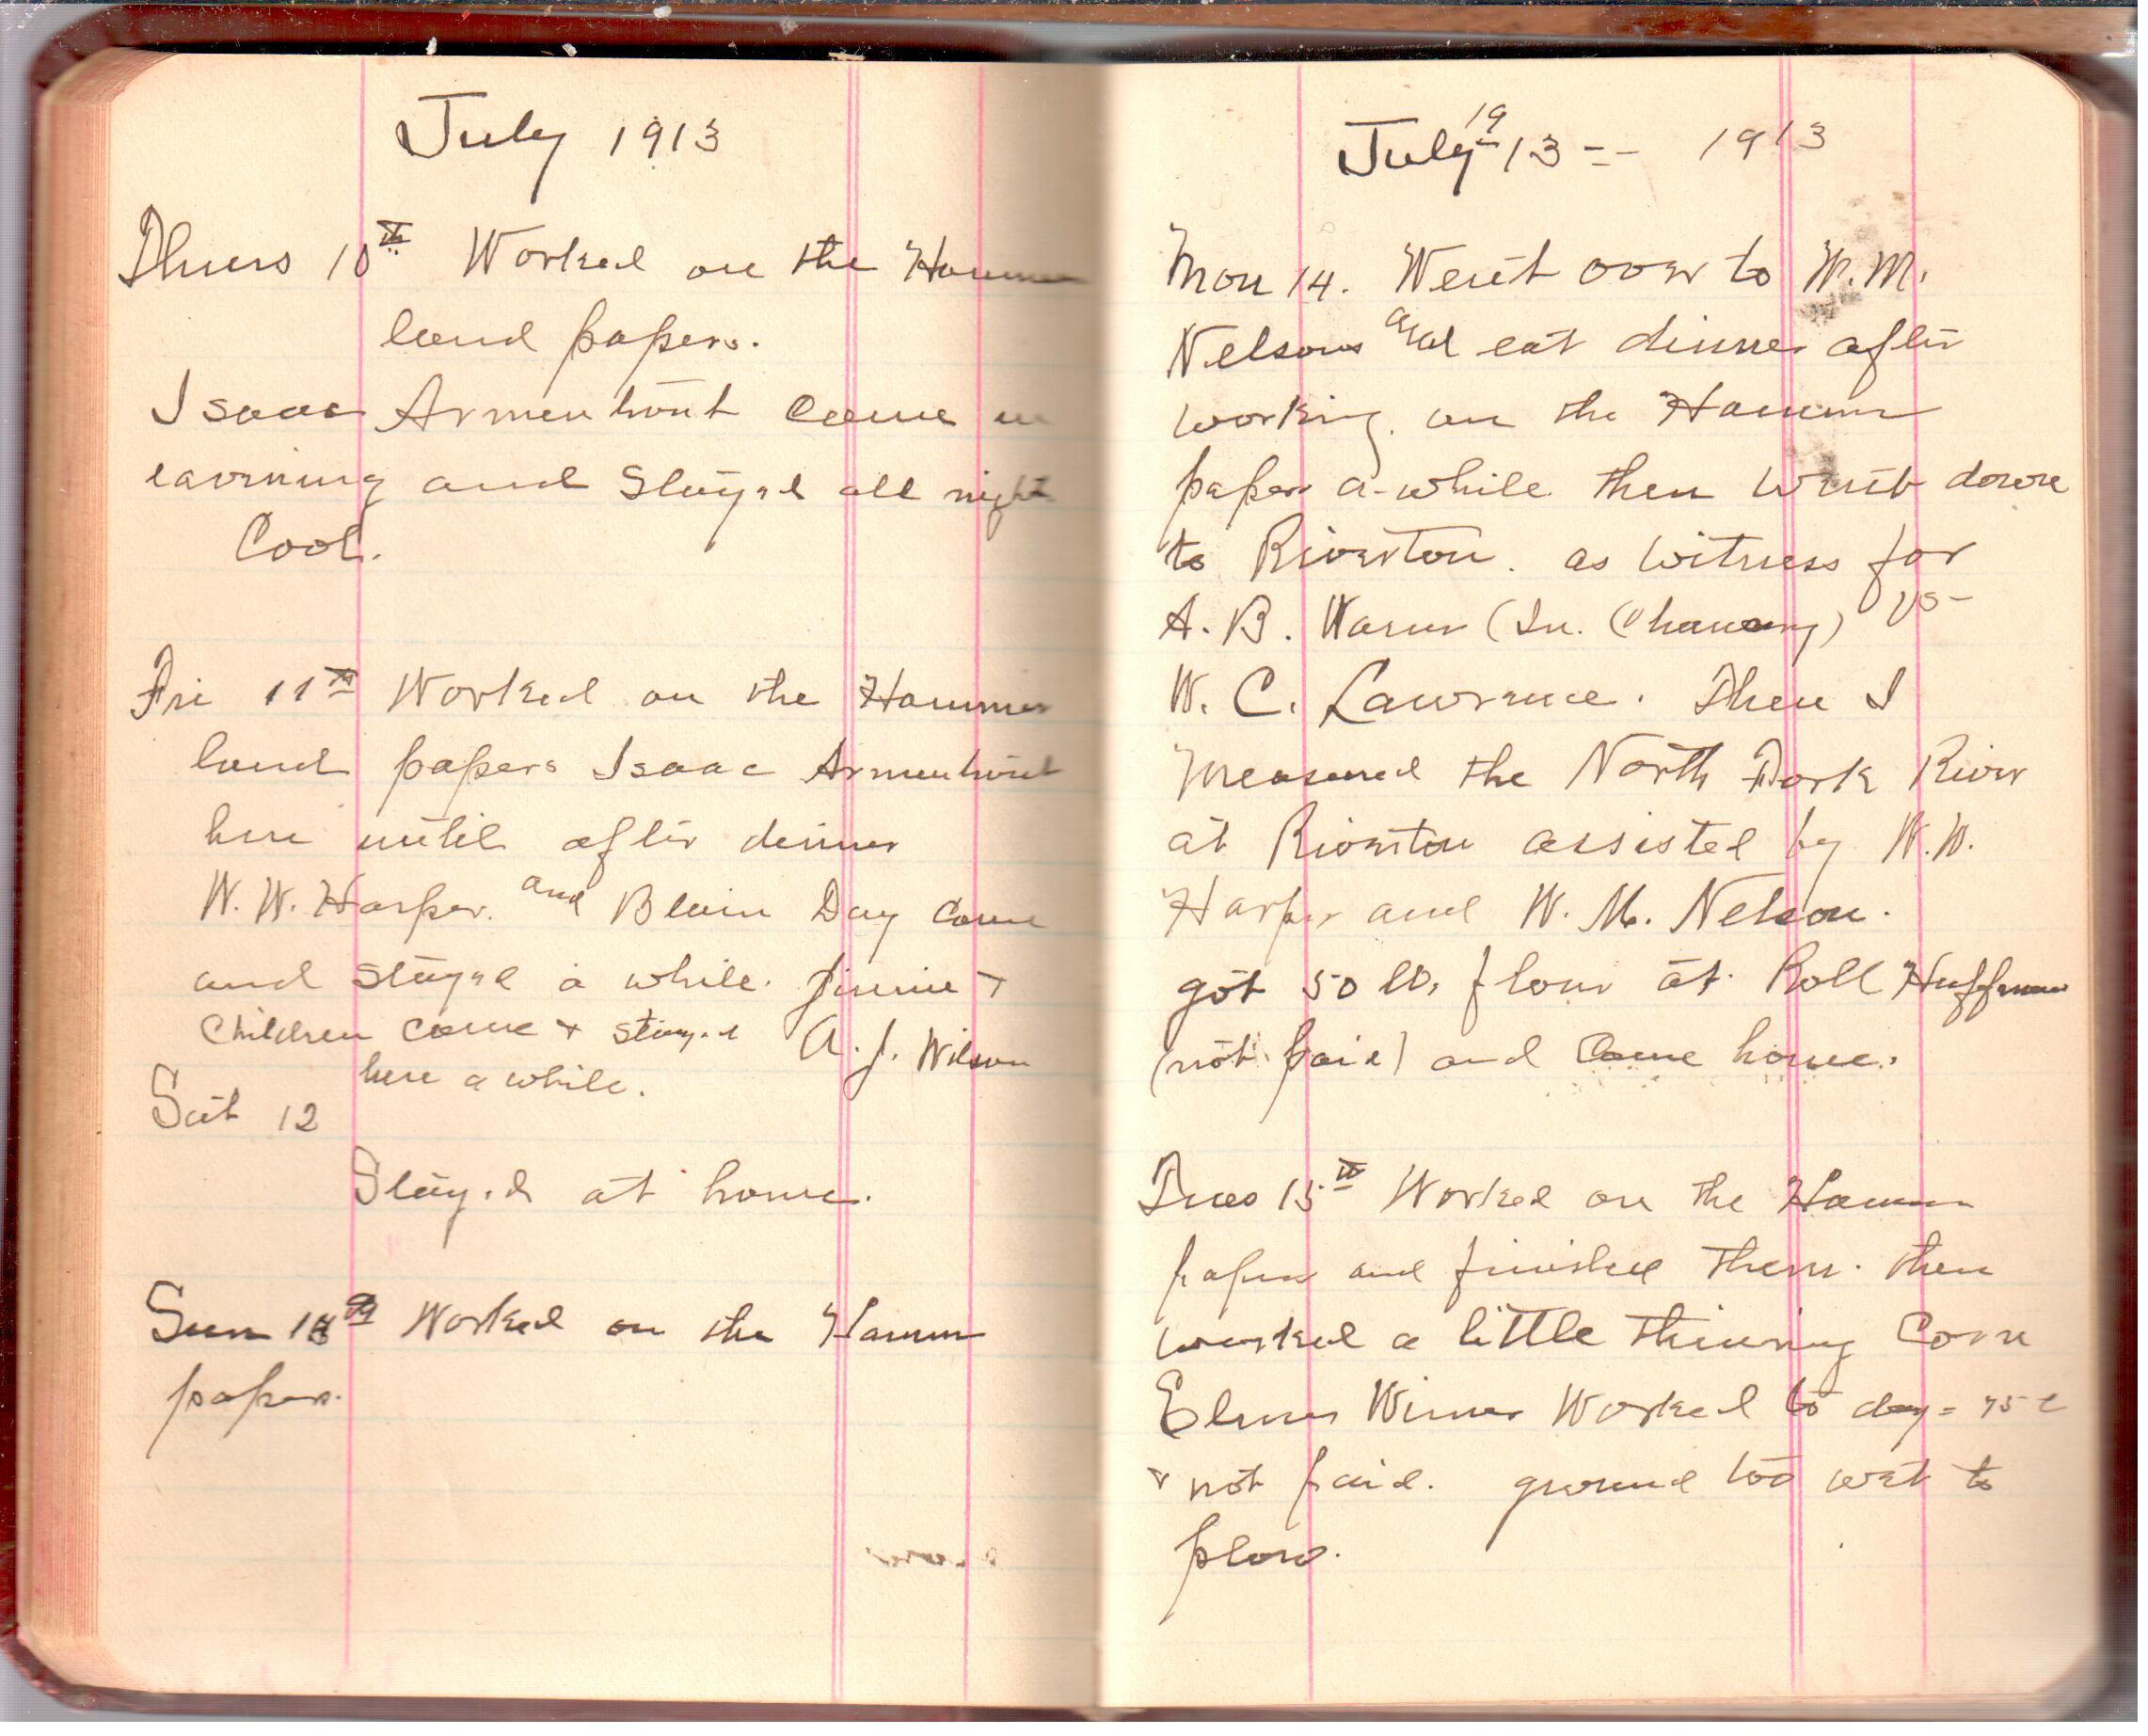 July 1913
Thurs 10th Worked on the Hamm
land papers.
Isaac Armentrout Came in
eavening and Stayed all night
Cool.
Fri 11th Worked on the Hamm
land papers Isaac Armentrout
here until after dinner
W. W. Harper. and Blain Day Came
and Stayed a while. Jinnie +
Children Came + Stayed A. J. Wilson
here a while.
Sat 12
Stayed at home.
Sun 13th Worked on the Hamm
papers.
July 19 13 -- 1913
Mon 14. Went over to W. M.
Nelsons and eat dinner after
working on the Hamm
papers a-while then went down
to Riverton. as Witness for
A. B. (In Chancery) vs-
W. C. Lawrence. Then I
Measured the North Fork River
at Riverton assisted by W. W.
Harper and W. M. Nelson.
got 50 lb. flour at Roll Huffman
(not paid) and Came home.
Tues 15th Worked on the Hamm
papers and finished Them. then
worked a little Thinning Corn
Elmer Worked to day = 75 c
+ not paid. ground too wet to
plow.